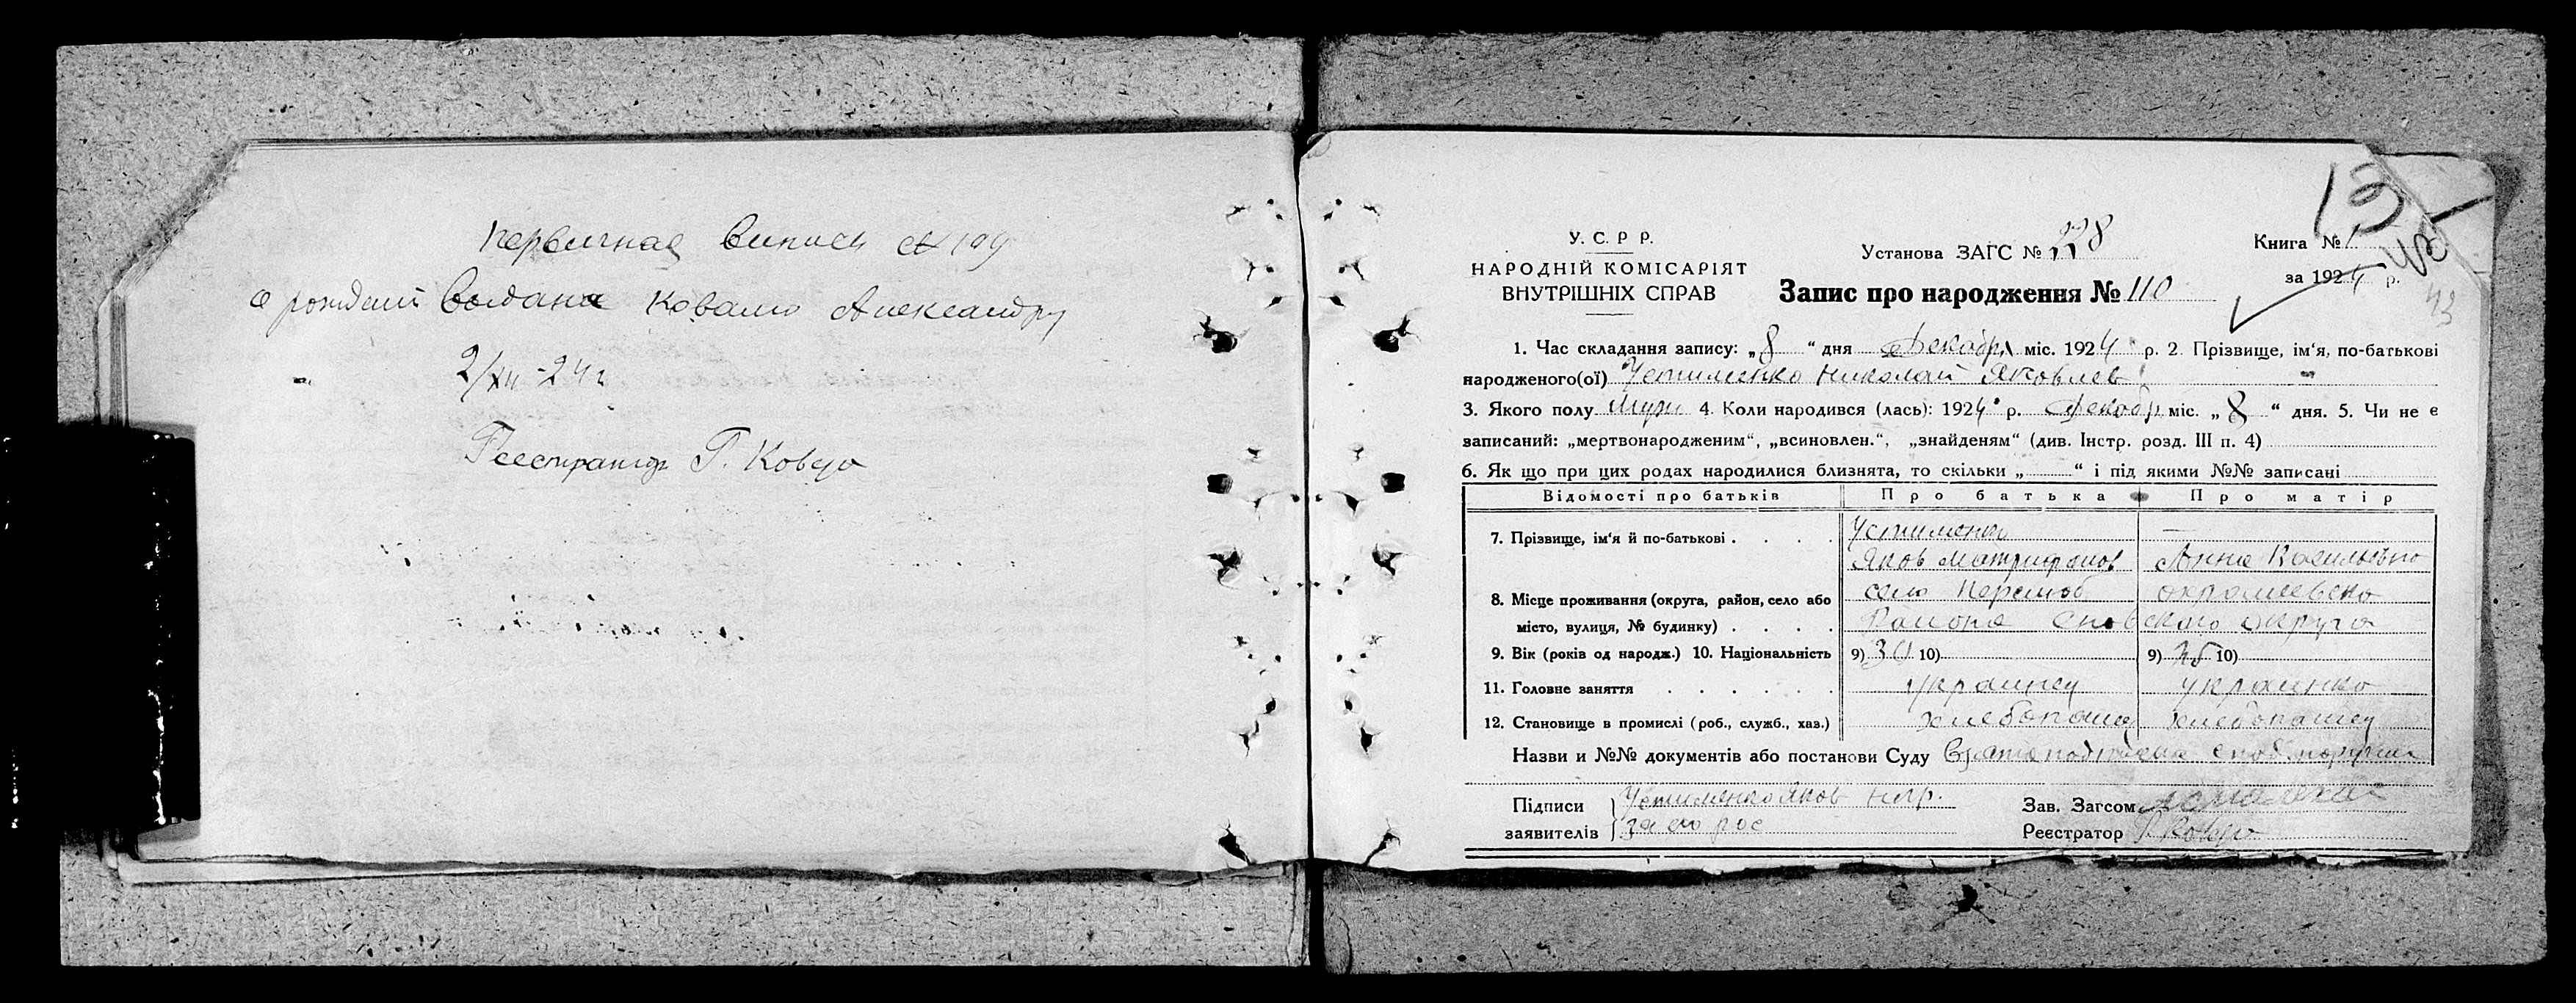 Первичная выпись № 109
о рождении выдана Ковалю Александру
2/XII-24 г
Реестратор Г. Ковер
13
43
У. С. Р. Р.
НАРОДНІЙ КОМІСАРІЯТ
ВНУТРІШНІХ СПРАВ
Установа ЗАГС № 228
Книга № 1
за 1924 р.
Запис про народження № 110
1. Час складання запису: „8“ дня Декабря міс. 1924 р. 2. Прізвище, ім‘я, по-батькові
народженого(ої) Устименко Николай Яковлев
3. Якого полу Муж 4. Коли народився (лась): 1924 р. Декабр міс. „8“ дня. 5. Чи не є
записаний: „мертвонародженим“, „всиновлен.“, „знайденям“ (див. Інстр. розд. III п. 4)
6. Як що при цих родах народилися близнята, то скільки „ “ і під якими №№ записані
Відомості про батьків Про батька Про матір
7. Прізвище, ім‘я й по-батькові Устименко —
Яков Митрифанов Анна Васильевна
8. Місце проживання (округа, район, село або село Перелюб
місто, вулиця, № будинку) Района Сновского округа
9. Вік (років од народж.) 10. Національність 9) 30 10) 9) 25 10)
11. Головне заняття украинец украинка
12. Становище в промислі (роб., служб., хаз.) хлебопашец хлебопашец
Назви и №№ документів або постанови Суду
Підписи заявителів Устименко Яков негр.
за его рос
Зав. Загсом
Реєстратор Г Ковер